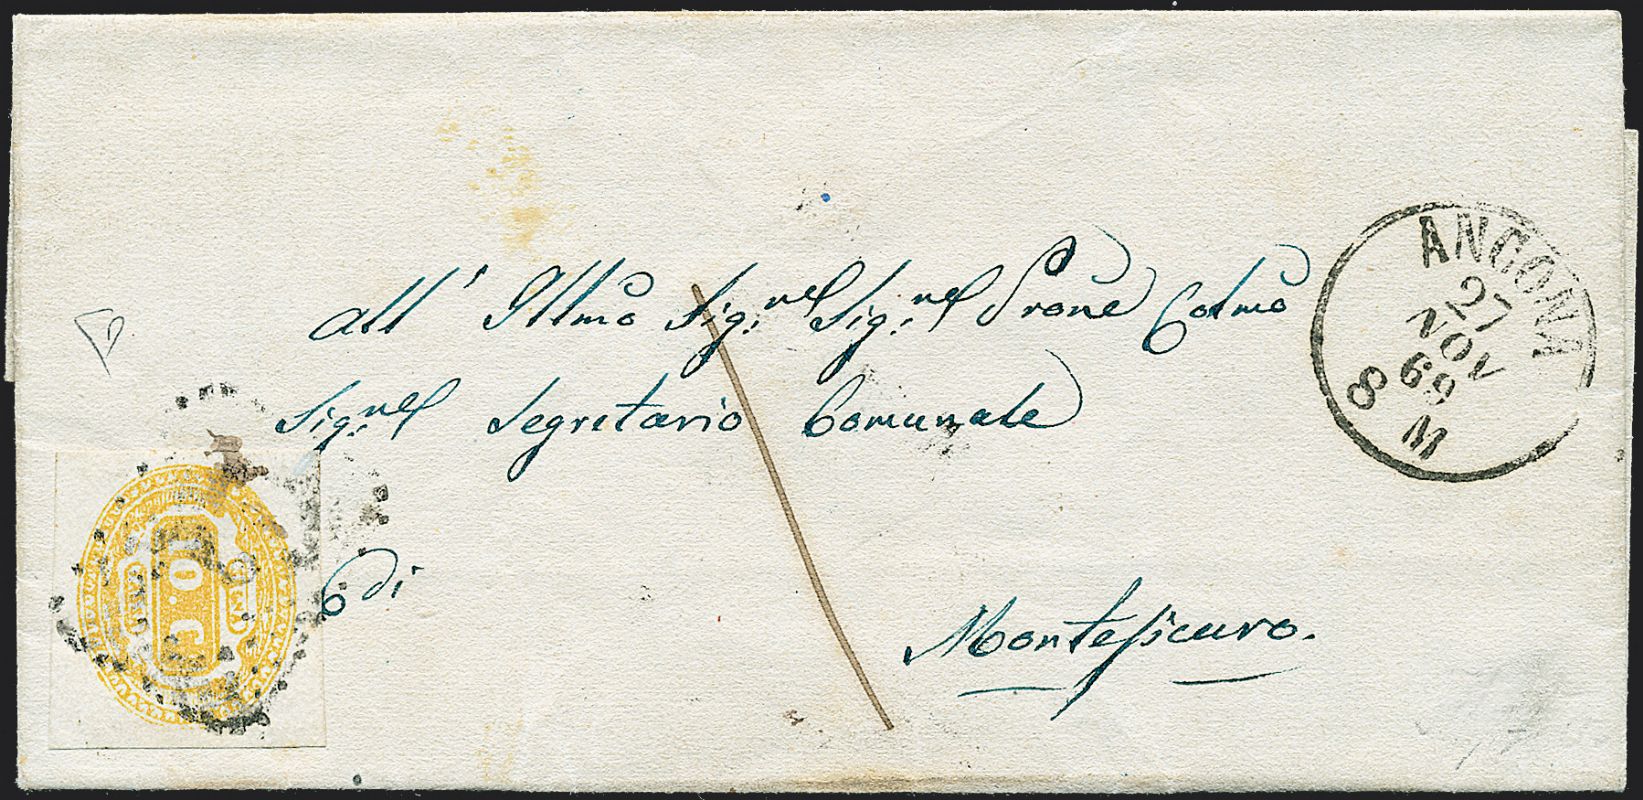 All' Illmo Sig.re Sig.re Prone Colmo
Sig.re Segretario Comunale
di
Montesicuro.
ANCONA
27
NOV
69
8 M
10. C